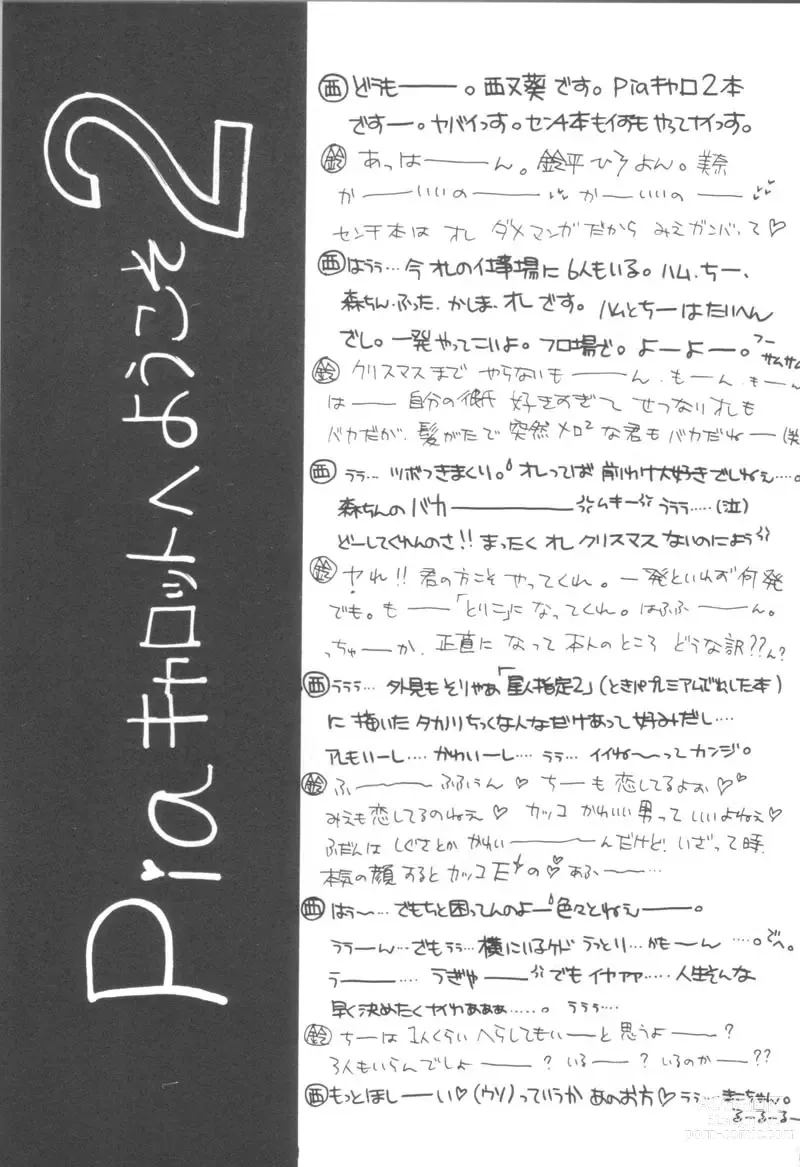 Piaキャロットへようこそ2
西 どうもーー。西又葵です。Piaキャロ2本
ですー。ヤバイっす。センチ本もイおもやってナイっす。
鈴 あっはーーーん。鈴平ひろよん。美奈
かーーいいのーーー かーいいのーー
センチ本は オレ ダメマンガだから みえガンバって♡
西 はうぅ…今オレの仕事場に6人もいる。ハム、ちー、
森ちん、ふった、かしま、オレです。ハムとちーはたいへん
でし。一発やってこいよ。フロ場で。よーよー。フー
サムサム
鈴 クリスマスまで やらないもーーん、もーん、もーん
はーー自分の彼氏 好きすぎて せつなりオレも
バカだが、髪がたで突然メロ²な君もバカだねー(笑
西 うぅ…ツボつきまくり。オレってば前わけ大好きでしねぇ…。
森ちんのバカーーーームキーうぅぅ……(泣)
どーしてくれんのさ!!まったくオレ クリスマス ないのによう
鈴 ヤれ!!君の方こそ やってくれ。一発といわず何発
でも。もーー「とりこ」になってくれ。はふふーーん。
っちゅーか、正直に なって 本人のところ どうな訳??ん?
西 ううう…外見もそりゃあ「星人指定2」(ときパプレミアムでだした本)
に描いたタカ川ちっくな人なだけあって好みだし…
アレもいーし…かわいーし…うぅ…イイね〜ってカンジ。
鈴 ふーーーふふぅん♡ ちーも恋してるよぉ♡
みえも恋してるのねえ♡ カッコかわいい男っていいよねえ♡
ふだんは しぐさとか かわいーーーんだけど、いざって時、
本気の顔するとカッコE の♡あふー…
西 はぅ〜…でもちと困ってんのよー色々とねぇーー。
ううーん…でもうぅ…横にいるケド うっとり…かもーん …。でへ。
うーー…うぎゅーーでもイヤァァ……人生そんな
早く決めたくナイわあぁぁ……。ううぅ…
鈴 ちーは 1人くらい へらしてもいーと思うよーー?
3人もいらんでしょーー?いるー?いるのかー??
西 もっとほしーーい♡(ウソ)っていうか あのお方♡ うぅ
るーるーるー